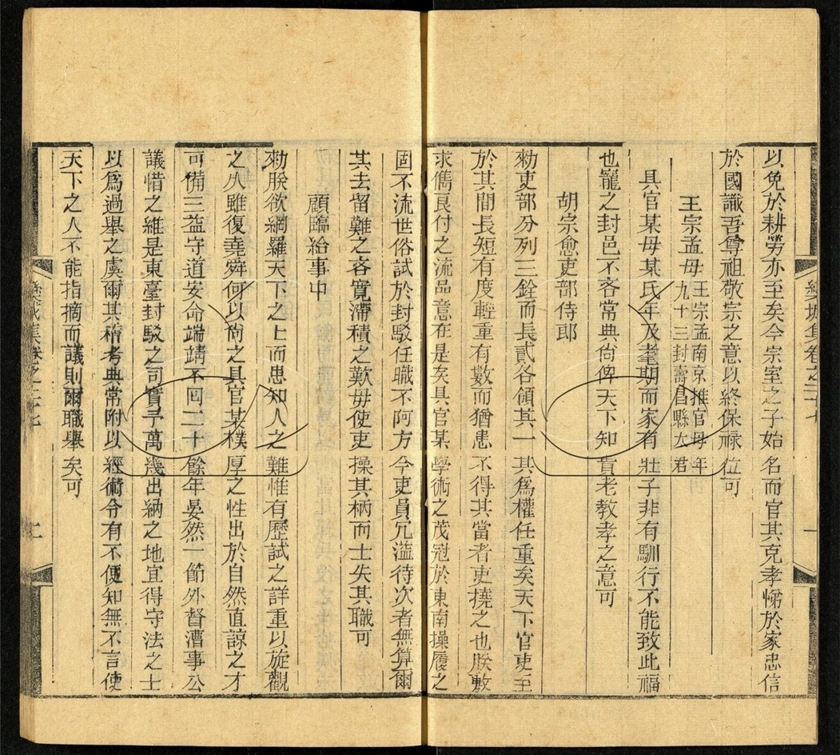 以免於耕勞亦至矣今宗室之子始名而官其克孝悌於家忠信
於國識吾尊祖敬宗之意以終保祿位可
王宗孟母
王宗孟南京推官母年
九十三封壽昌縣太君
具官某母某氏年及耄期而家有壯子非有馴行不能致此福
也寵之封邑不吝常典尙俾天下知貴老教孝之意可
胡宗愈吏部侍郎
勑吏部分列三銓而長貳各領其一其爲權任重矣天下官吏至
於其間長短有度輕重有數而猶患不得其當者吏撓之也朕敷
求儁良付之流品意在是矣具官某學術之茂冠於東南操履之
固不流世俗試於封駮任職不阿方今吏員冗溢待次者無算爾
其去留難之吝寬滯積之歎毋使吏操其柄而士失其職可
顧臨給事中
勑朕欲網羅天下之士而患知人之難惟有歷試之詳重以旋觀
之久雖復堯舜何以尙之具官某樸厚之性出於自然直諒之才
可備三益守道安命端靖不回二十餘年晏然一節外督漕事公
議惜之維是東臺封駮之司實予萬幾出納之地宜得守法之士
以爲過舉之虞爾其稽考典常附以經術令有不便知無不言使
天下之人不能指摘而議則爾職舉矣可
欒城集卷之二十七